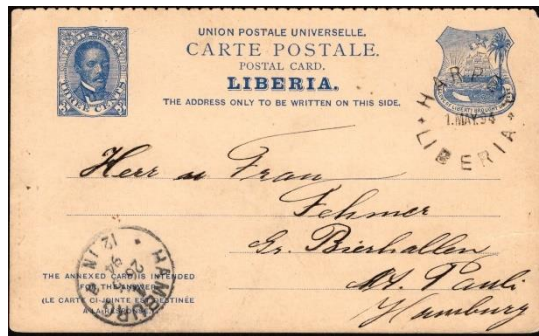 UNION POSTALE UNIVERSELLE.
CARTE POSTALE.
POSTAL CARD.
LIBERIA.
THE ADDRESS ONLY TO BE WRITTEN ON THIS SIDE.
THREE CENTS
HARPER
1.MAY.94
LIBERIA
Herr u Frau
Fehmer
Gr. Bierhallen
St. Pauli
Hamburg
HAMBURG
94
THE ANNEXED CARD IS INTENDED
FOR THE ANSWER.
(LE CARTE CI-JOINTE EST DESTINÉE
A LA RESPONSE.)